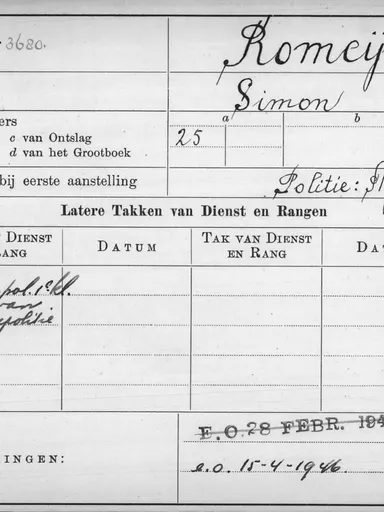 3680.
Romeij
Simon
ers
a b
c van Ontslag 25
d van het Grootboek
bij eerste aanstelling
Politie:
Latere Takken van Dienst en Rangen
DIENST
ANG
DATUM
TAK VAN DIENST
EN RANG
DA
pol. 1e kl.
van
politie
E.O. 28 FEBR. 194
INGEN:
e.o. 15-4-1946.